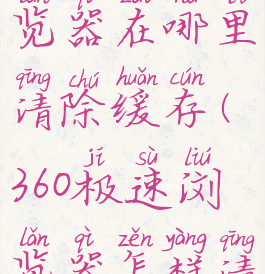 览器在哪里
qīng chú huǎn cún
清除缓存(
jí sù liú
360极速浏
lǎn qì zěn yàng qīng
览器怎样清